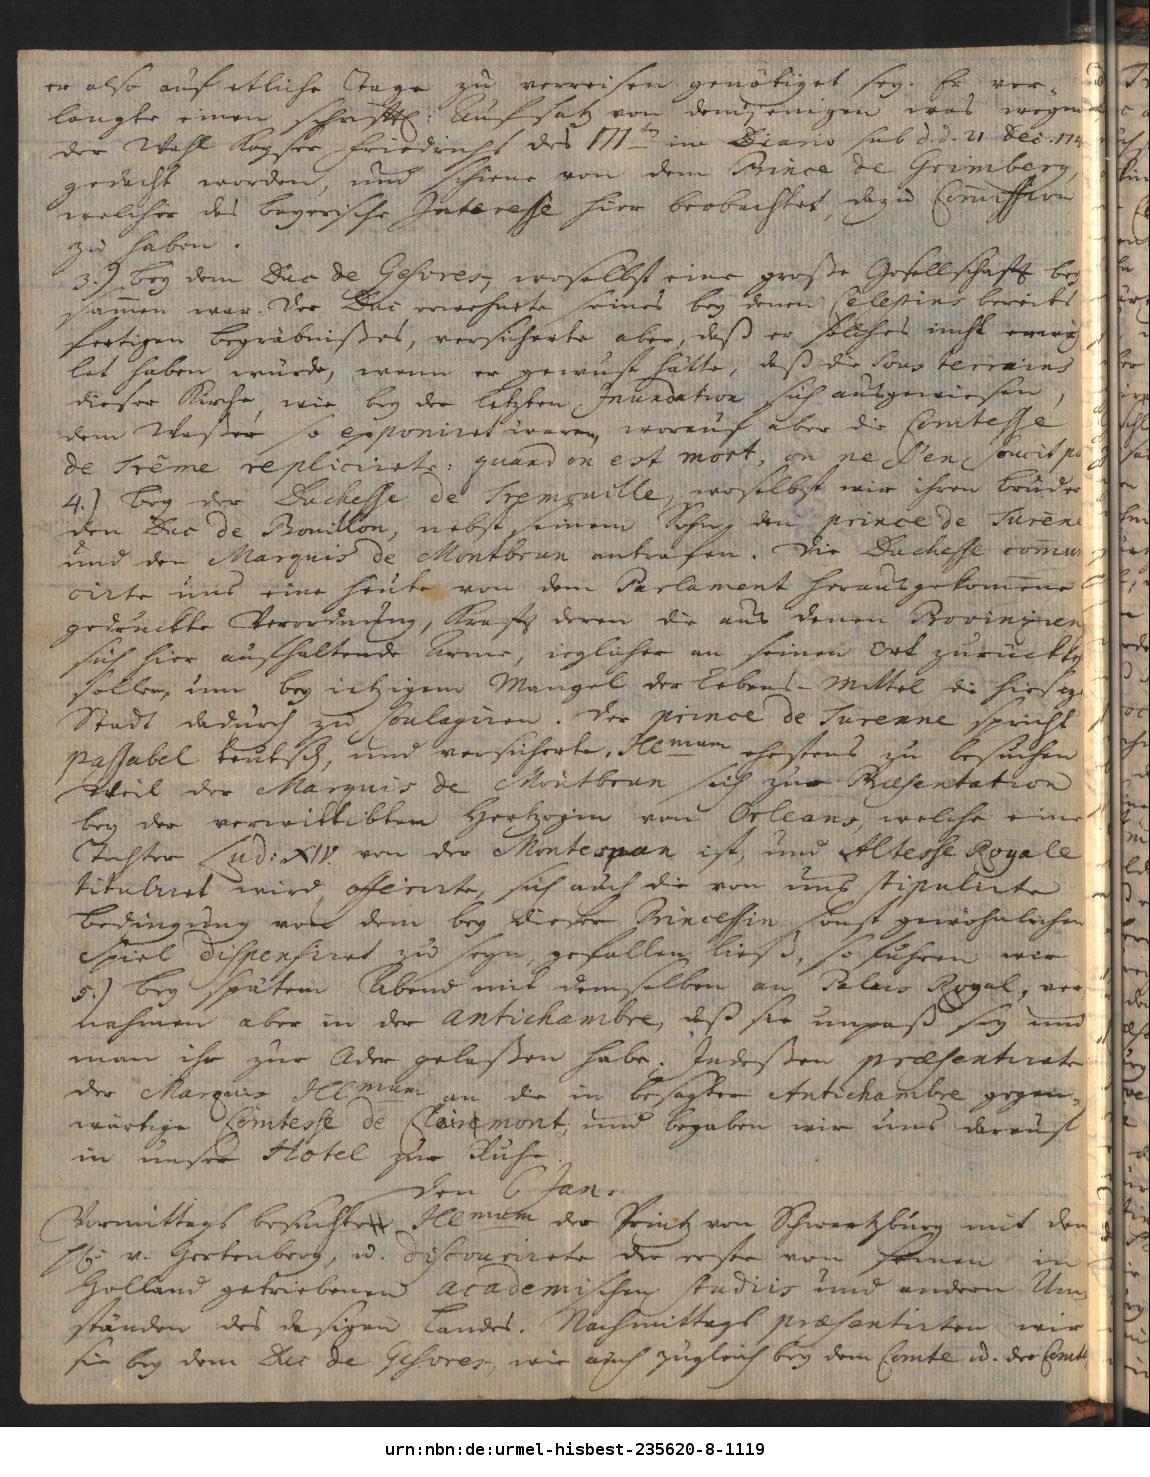 er also auf etliche Tage zu verreisen genötiget sey. Er ver-
langte einen schrifftl: Auffsatz von demjenigen was wegen
der Wahl Kayser Friedrichs des III ten im Diario sub d. d. 21 Dec. 174
gedacht worden, und schiene von dem Prince de Grimberg,
welcher das bayerische Interesse hier beobachtet, dazu Commission
zu haben.
3.) bey dem Duc de Gesvres, woselbst eine große Gesellschafft bey
sammen war. Der Duc erwehnte seines bey denen Celestins bereits
fertigen Begräbnißes, versicherte aber, daß er solches nicht erwäh
let haben würde, wenn er gewust hätte, daß die Sous terrains
dieser Kirche, wie bey der letzten Inundation sich ausgewiesen,
dem Waßer so exponiret waren, worauf aber die Comtesse
de Trême replicirte: quand on est mort, on ne s'en soucit pa
4.) bey der Duchesse de Tremouille, woselbst wir ihren Bruder
den Duc de Bouillon, nebst seinem Sohn, den prince de Turene
und den Marquis de Montbrun antrafen. Die Duchesse commun
cirte uns eine heute von dem Parlament herausgekommene
gedruckte Verordnung, Krafft deren die aus denen Provinzien
sich hier aufhaltende Arme, ieglicher an seinen Ort zurückke
sollen, um bey ietzigem Mangel der Lebens-Mittel die hiesige
Stadt dadurch zu soulagiren. Der prince de Turenne spricht
passabel teutsch, und versicherte, Ill mum ehestens zu besuchen
Weil der Marquis de Montbrun sich zur Præsentation
bey der verwittibten Hertzogin von Orleans, welche eine
Tochter Lud: XIV. von der Montespan ist, und Altesse Royale
tituliret wird, offerirte, sich auch die von uns stipulirte
Bedingung von dem bey dieser Princessin sonst gewöhnlichen
Spiel dispensiret zu seyn, gefallen ließ, so fuhren wir
5.) bey spätem Abend mit demselben an Palais Royal, ver
nahmen aber in der Antichambre, daß sie unpaß sey und
man ihr zur Ader gelaßen habe. Indeßen præsentirte
der Marquis Ill mum an die in besagter Antichambre gegen-
wärtige Comtesse de Clairmont, und begaben wir uns darauf
in unser Hotel zur Ruhe.
den 6 Jan.
Vormittags besuchte Ill mum der Printz von Schwartzburg mit dem
H. v. Gertenberg, u. discourirte der erste von seinen in
Holland getriebenen academischen studiis und andern Um-
ständen des dasigen Landes. Nachmittags præsentirten wir
sie bey dem Duc de Gesvres, wie auch zugleich bey dem Comte u. der Comt
urn:nbn:de:urmel-hisbest-235620-8-1119